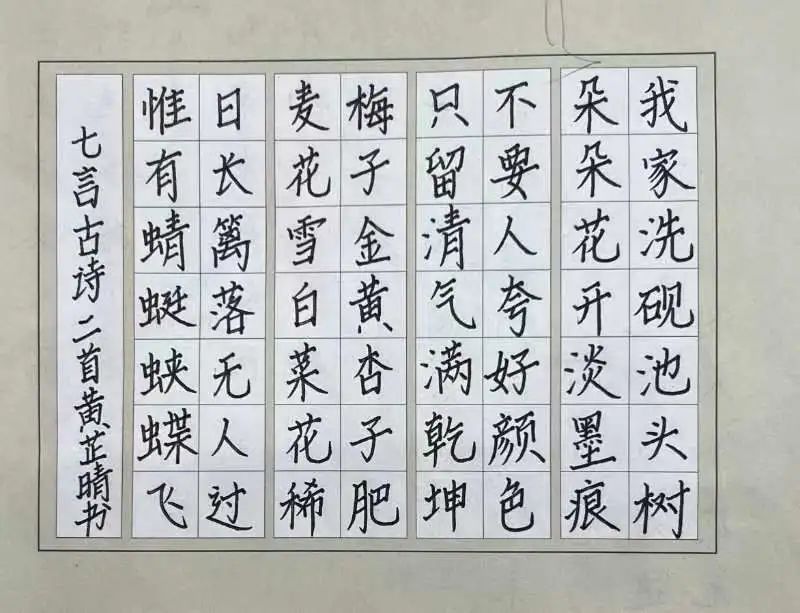 我家洗砚池头树
朵朵花开淡墨痕
不要人夸好颜色
只留清气满乾坤
梅子金黄杏子肥
麦花雪白菜花稀
日长篱落无人过
惟有蜻蜓蛱蝶飞
七言古诗二首黄芷晴书